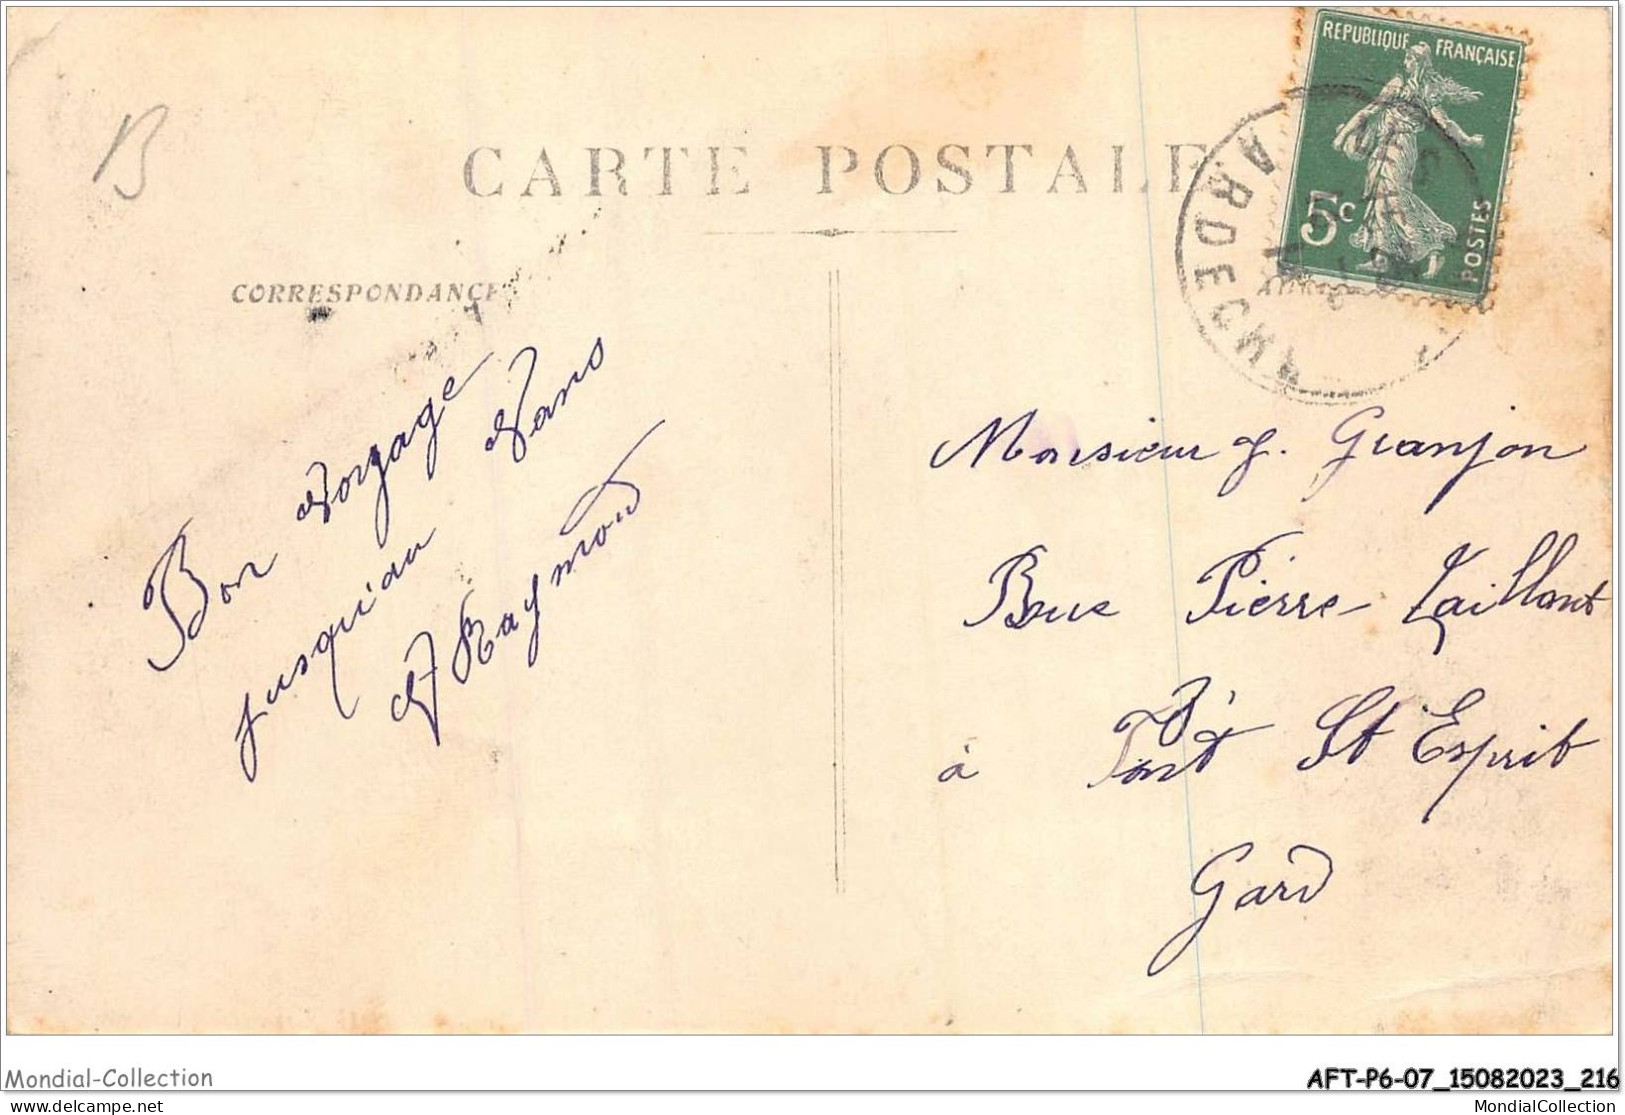 B
REPUBLIQUE FRANÇAISE
5c
POSTES
ARDECHE
CARTE POSTALE
CORRESPONDANCE
Bon Voryage
jusqu'au Vans
Raymond
Monsieur J. Granjon
Rue Pierre Taillant
à Pont St Esprit
Gard
Mondial-Collection
AFT-P6-07_15082023_216
delcampe.net
MondialCollection